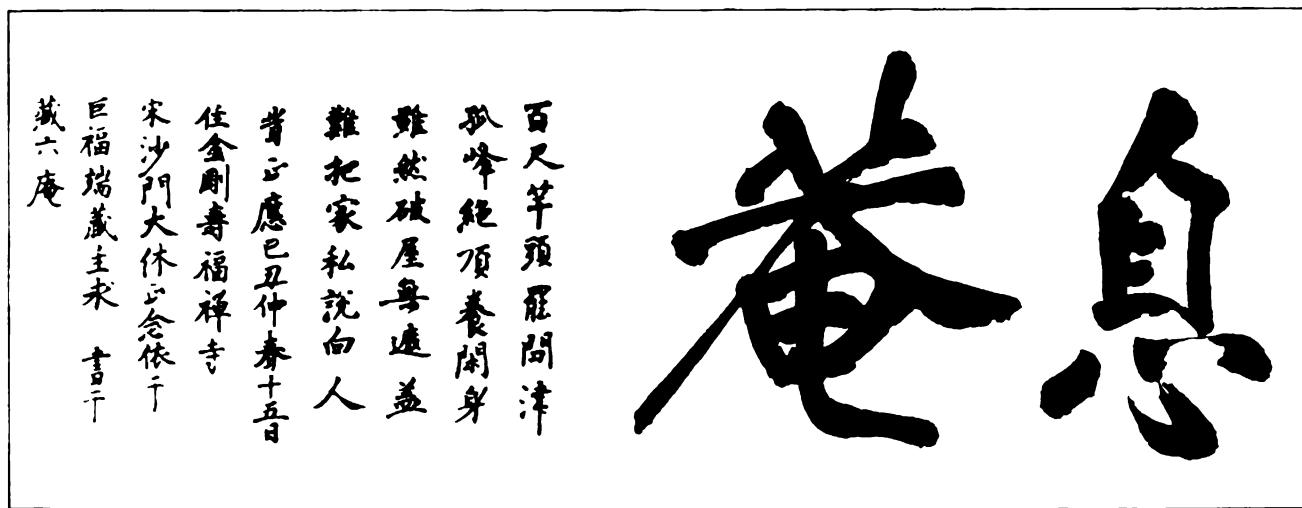 息菴
百尺竿頭罷問津
孤峰絶頂養閑身
雖然破屋無遮蓋
難把家私說向人
旹正應己丑仲春十五日
住金剛壽福禅寺
宋沙門大休正念依
巨福端藏主求 書于
藏六庵